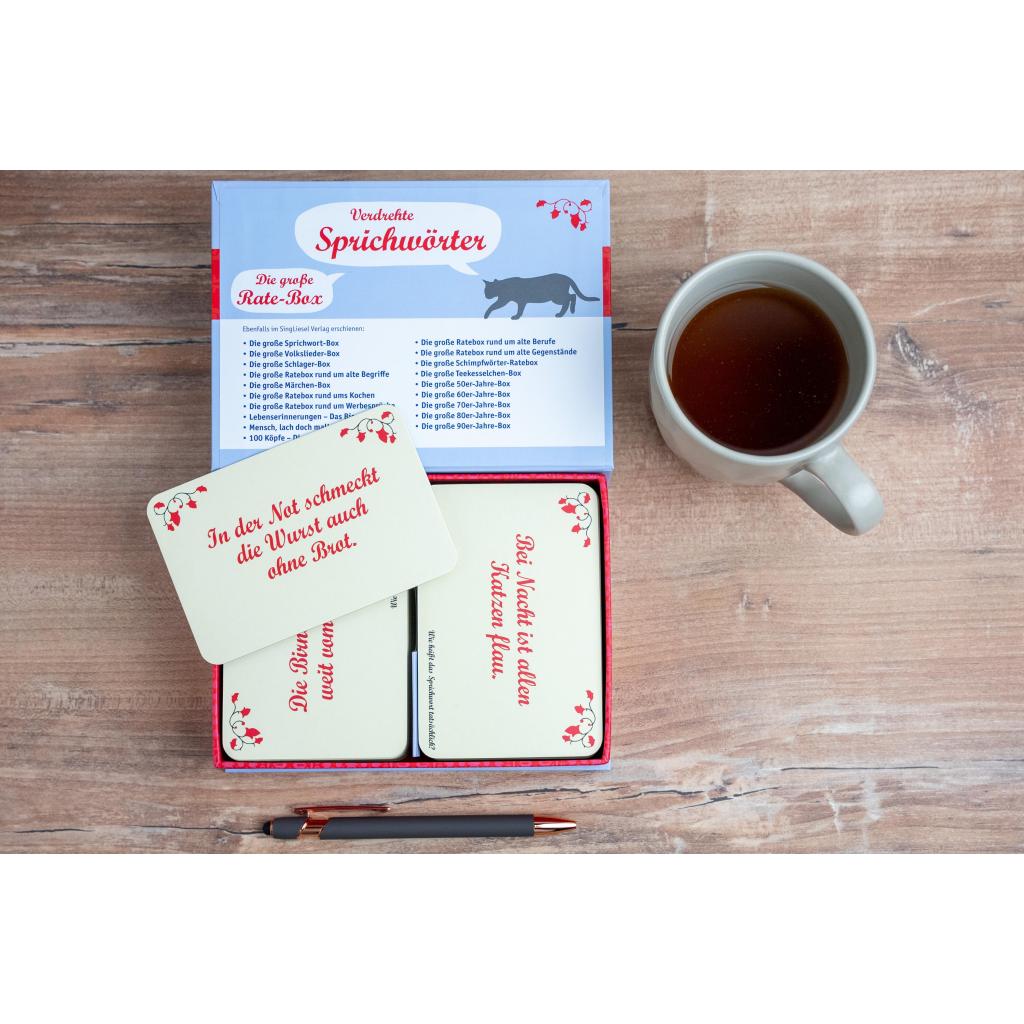 Verdrehte
Sprichwörter
Die große
Rate-Box
Ebenfalls im SingLiesel Verlag erschienen:
• Die große Sprichwort-Box
• Die große Volkslieder-Box
• Die große Schlager-Box
• Die große Ratebox rund um alte Begriffe
• Die große Märchen-Box
• Die große Ratebox rund ums Kochen
• Die große Ratebox rund um Werbesprüche
• Lebenserinnerungen – Das
• Mensch, lach doch
• 100 Köpfe –
• Die große Ratebox rund um alte Berufe
• Die große Ratebox rund um alte Gegenstände
• Die große Schimpfwörter-Ratebox
• Die große Teekesselchen-Box
• Die große 50er-Jahre-Box
• Die große 60er-Jahre-Box
• Die große 70er-Jahre-Box
• Die große 80er-Jahre-Box
• Die große 90er-Jahre-Box
In der Not schmeckt
die Wurst auch
ohne Brot.
Die Birn
weit vom
Bei Nacht ist allen
Katzen flau.
Wie heißt das Sprichwort tatsächlich?